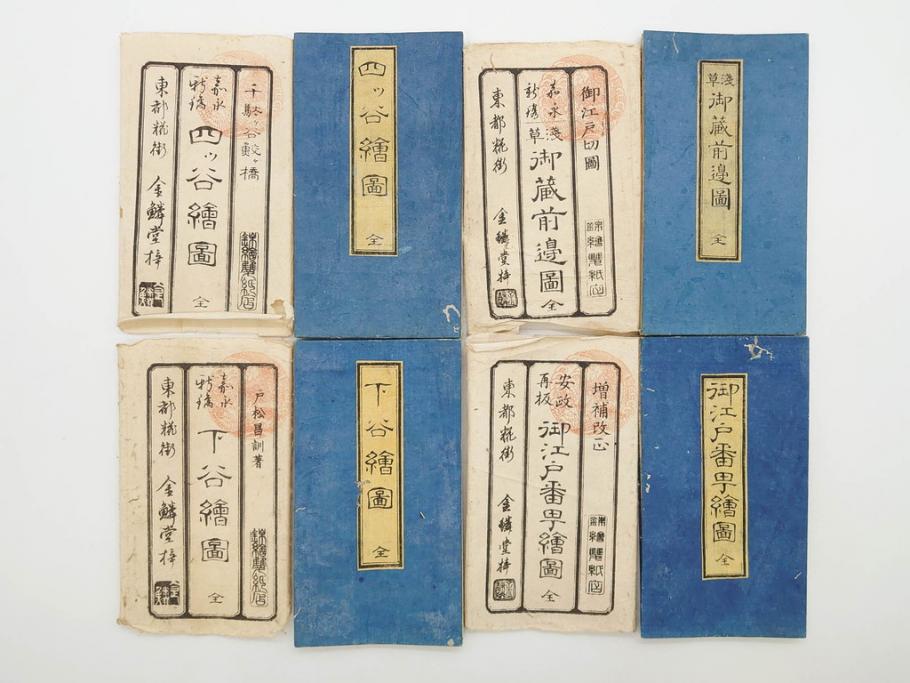 千駄ヶ谷鮫ヶ橋
嘉永
新鐫
四ッ谷繪圖 全
東都糀街 金鱗堂梓
四ッ谷繪圖 全
御江戸切圖
嘉永
新鐫
淺草
御蔵前邊圖 全
東都糀街 金鱗堂梓
淺草
御蔵前邊圖 全
戸松昌訓著
嘉永
新鐫
下谷繪圖 全
東都糀街 金鱗堂梓
下谷繪圖 全
増補改正
安政
再板
御江戸番甼繪圖 全
東都糀街 金鱗堂梓
御江戸番甼繪圖 全